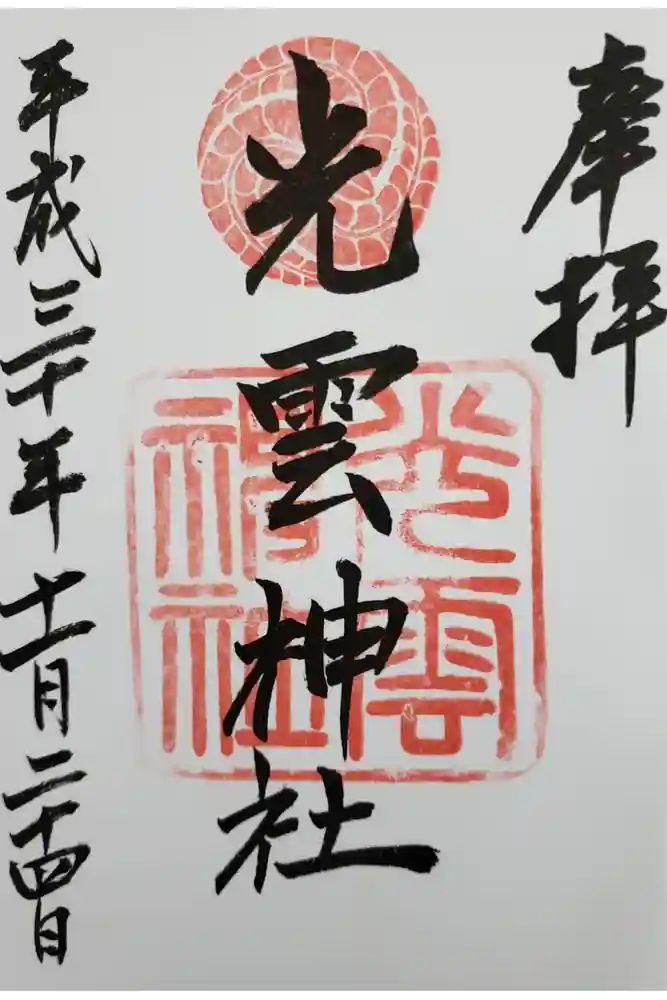 奉拝
光雲神社
光雲
神社
平成三十年十一月二十四日